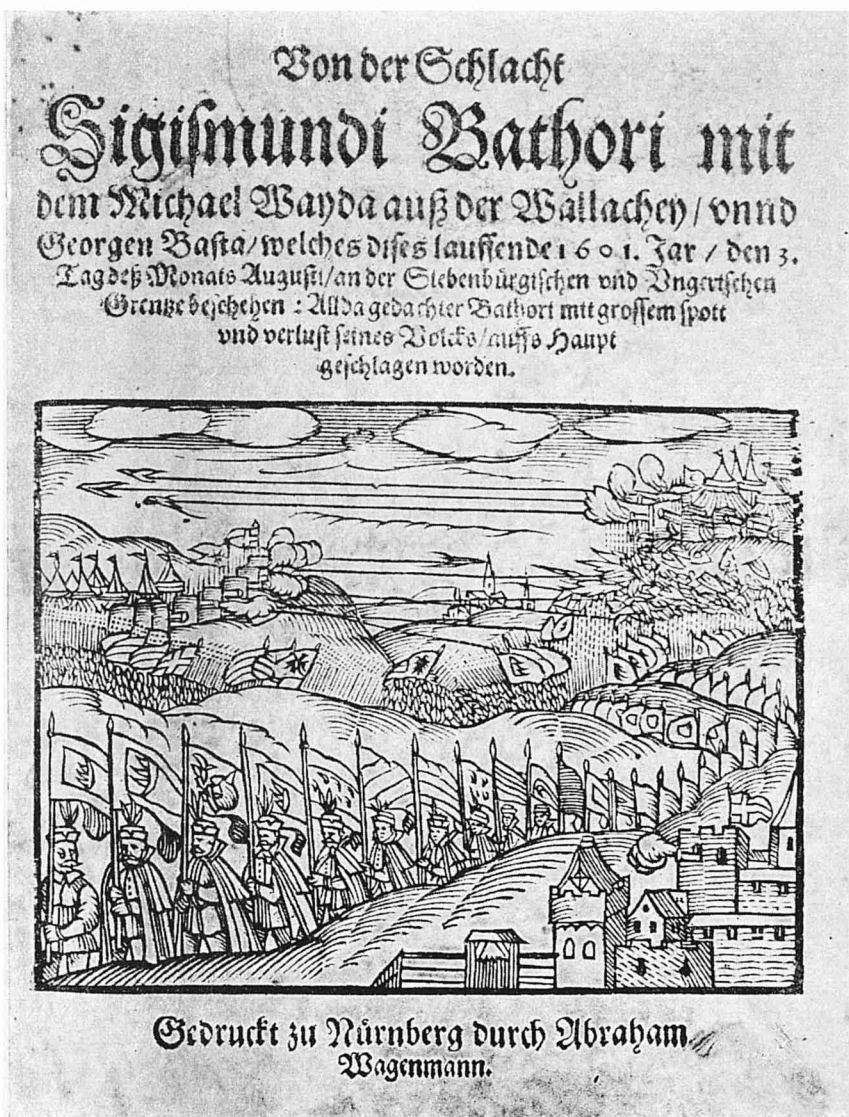 Von der Schlacht
Sigiſmundi Bathori mit
dem Michael Wayda auß der Wallachey / vnnd
Georgen Baſta / welches diſes lauffende 1601. Jar / den 3.
Tag deß Monats Auguſti / an der Siebenbürgiſchen vnd Vngeriſchen
Grentze beſchehen : Allda gedachter Bathori mit groſſem ſpott
vnd verluſt ſeines Volcks / auffs Haupt
geſchlagen worden.
Gedruckt zu Nürnberg durch Abraham
Wagenmann.